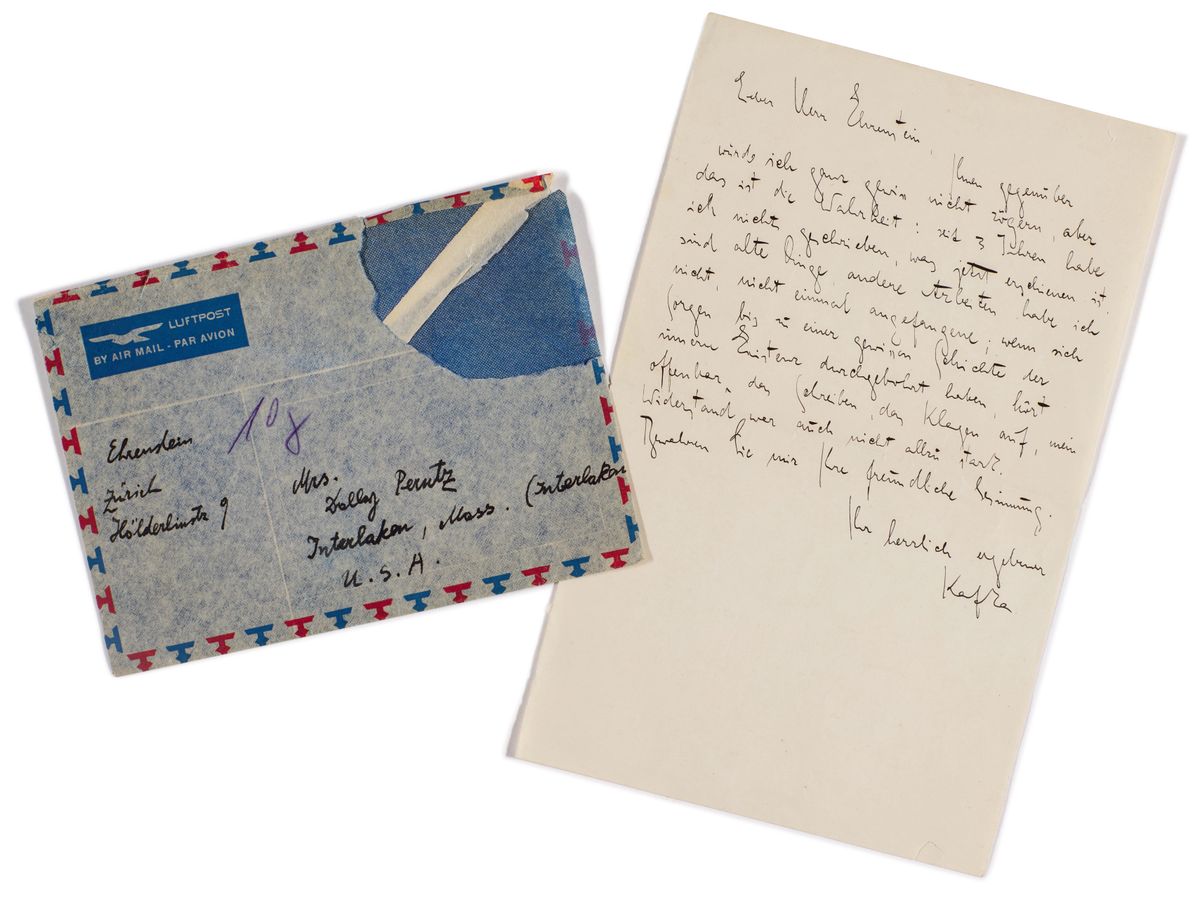 LUFTPOST
BY AIR MAIL - PAR AVION
10
Ehrenstein
Zürich
Hölderlinstr 9
Mrs.
Dolly Perutz
Interlaken, Mass. (Interlaken
U.S.A.
Lieber Herr Ehrenstein,
Ihnen gegenüber
würde ich ganz gewiss nicht zögern, aber
das ist die Wahrheit: seit 3 Jahren habe
ich nichts geschrieben, was jetzt erschienen ist
sind alte Dinge, andere Arbeiten habe ich
nicht, nicht einmal angefangene; wenn sich
Sorgen bis zu einer gewissen Schichte der
innern Existenz durchgebohrt haben, hört
offenbar das Schreiben, das Klagen auf, mein
Widerstand war auch nicht allzu stark.
Bewahren Sie mir Ihre freundliche Gesinnung.
Ihr herzlich ergebener
Kafka